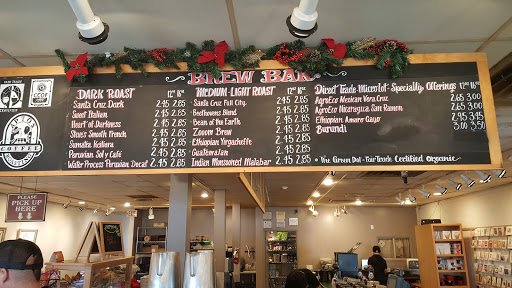 BREW BAR
DARK ROAST 12oz 16oz
Santa Cruz Dark 2.45 2.85
Sweet Italian 2.45 2.85
Heart of Darkness 2.45 2.85
Steve's Smooth French 2.45 2.85
Sumatra Ketiara 2.45 2.85
Peruvian Sol y Café 2.45 2.85
Water Process Peruvian Decaf 2.45 2.85
MEDIUM-LIGHT ROAST 12oz 16oz
Santa Cruz Full City 2.45 2.85
Beethovens Blend 2.45 2.85
Bean of the Earth 2.45 2.85
Zooom Brew 2.45 2.85
Ethiopian Yirgacheffe 2.45 2.85
Guatemalan 2.45 2.85
Indian Monsooned Malabar 2.45 2.85
Direct Trade Microlot - Specialty Offerings 12oz 16oz
AgroEco Mexican Vera Cruz 2.65 3.00
AgroEco Nicaragua San Ramon
Ethiopian Amaro Gayo 2.95 3.45
Burundi 3.00 3.50
The Green Dot = Fair Trade Certified Organic
COFFEE
PLEASE
PICK UP
HERE